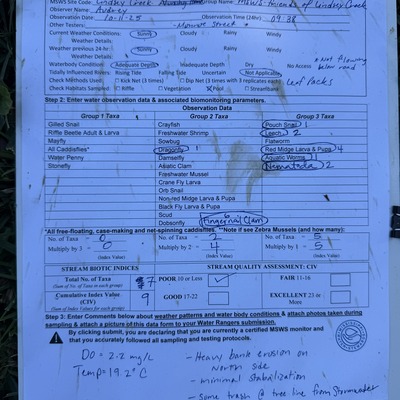 MSWS Site Code Lindsey Creek Group Name MSWS-friends of Lindsey Creek
Observer Name Audrey
Observation Date 10-11-25 Observation Time (24hr) 09:38
Other Testers Monroe Street
Current Weather Conditions: Sunny Cloudy Rainy Windy
Weather Details
Weather previous 24-hr Sunny Cloudy Rainy Windy
Weather Details
* Not flowing
below road
Waterbody Condition Adequate Depth Inadequate Depth Dry No Access
Tidally Influenced Rivers Rising Tide Falling Tide Uncertain Not Applicable
Check Methods Used: Kick Net (3 times) Dip Net (3 times with 3 replicates each) Leaf Packs
Check Habitats Sampled: Riffle Vegetation Pool Streambank
Step 2: Enter water observation data & associated biomonitoring parameters.
Observation Data
Group 1 Taxa Group 2 Taxa Group 3 Taxa
Gilled Snail Crayfish Pouch Snail 1
Riffle Beetle Adult & Larva Freshwater Shrimp Leech 2
Mayfly Sowbug Flatworm
All Caddisflies* Dragonfly 1 Red Midge Larva & Pupa 4
Water Penny Damselfly Aquatic Worms 1
Stonefly Asiatic Clam Nematoda 2
Freshwater Mussel
Crane Fly Larva
Orb Snail
Non-red Midge Larva & Pupa
Black Fly Larva & Pupa
Scud 6
Dobsonfly Fingernail Clam
*All free-floating, case-making and net-spinning caddisflies. **Note if see Zebra Mussels (and how many):
No. of Taxa = 0 No. of Taxa = 2 No. of Taxa = 5
Multiply by 3 = 0 Multiply by 2 = 4 Multiply by 1 = 5
(Index Value) (Index Value) (Index Value)
STREAM BIOTIC INDICES STREAM QUALITY ASSESSMENT: CIV
Total No. of Taxa 7 POOR 10 or Less ✓ FAIR 11-16
(Sum of No. of Taxa for each group)
Cumulative Index Value (CIV) 9 GOOD 17-22 EXCELLENT 23 or More
(Sum of Index Values for each group)
Step 3: Enter Comments below about weather patterns and water body conditions & attach photos taken during
sampling & attach a picture of this data form to your Water Rangers submission.
By clicking submit, you are declaring that you are currently a certified MSWS monitor and
that you accurately followed all sampling and testing protocols.
DO = 2.2 mg/L
Temp = 19.2°C
- Heavy bank erosion on
North side
- minimal stabilization
- some trash @ tree line from Stormwater